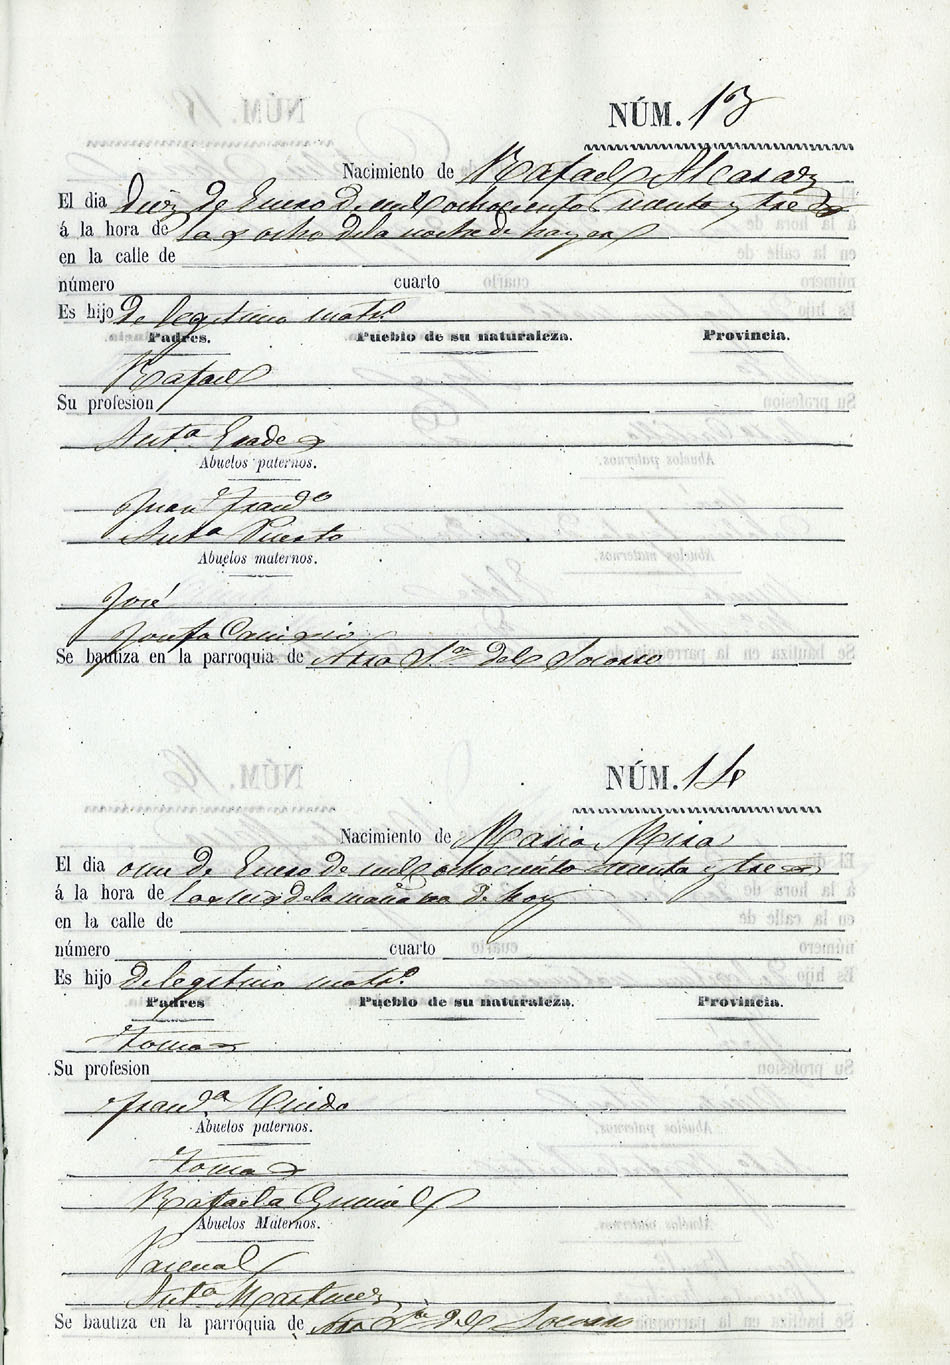 NÚM. 13
Nacimiento de Rafael Alcaraz
El dia diez de Enero de mil ochocientos y tres
á la hora de las ocho de la noche de hayer
en la calle de
número cuarto
Es hijo de legitimo matr.º
Padres. Pueblo de su naturaleza. Provincia.
Rafael
Su profesion
Ant.ª
Abuelos paternos.
Juan Fran.co
Ant.ª Puerto
Abuelos maternos.
José
Josefa
Se bautiza en la parroquia de Ntra S.ra del Socorro
NÚM. 14
Nacimiento de Maria Mira
El dia once de Enero de mil ochociento y tres
á la hora de las seis de la mañana de hoy
en la calle de
número cuarto
Es hijo de legitimo matr.º
Padres Pueblo de su naturaleza. Provincia.
Tomas
Su profesion
Fran.ca
Abuelos paternos.
Tomas
Rafaela
Abuelos Maternos.
Pascual
Ant.ª Martinez
Se bautiza en la parroquia de Ntra S.ra del Socorro